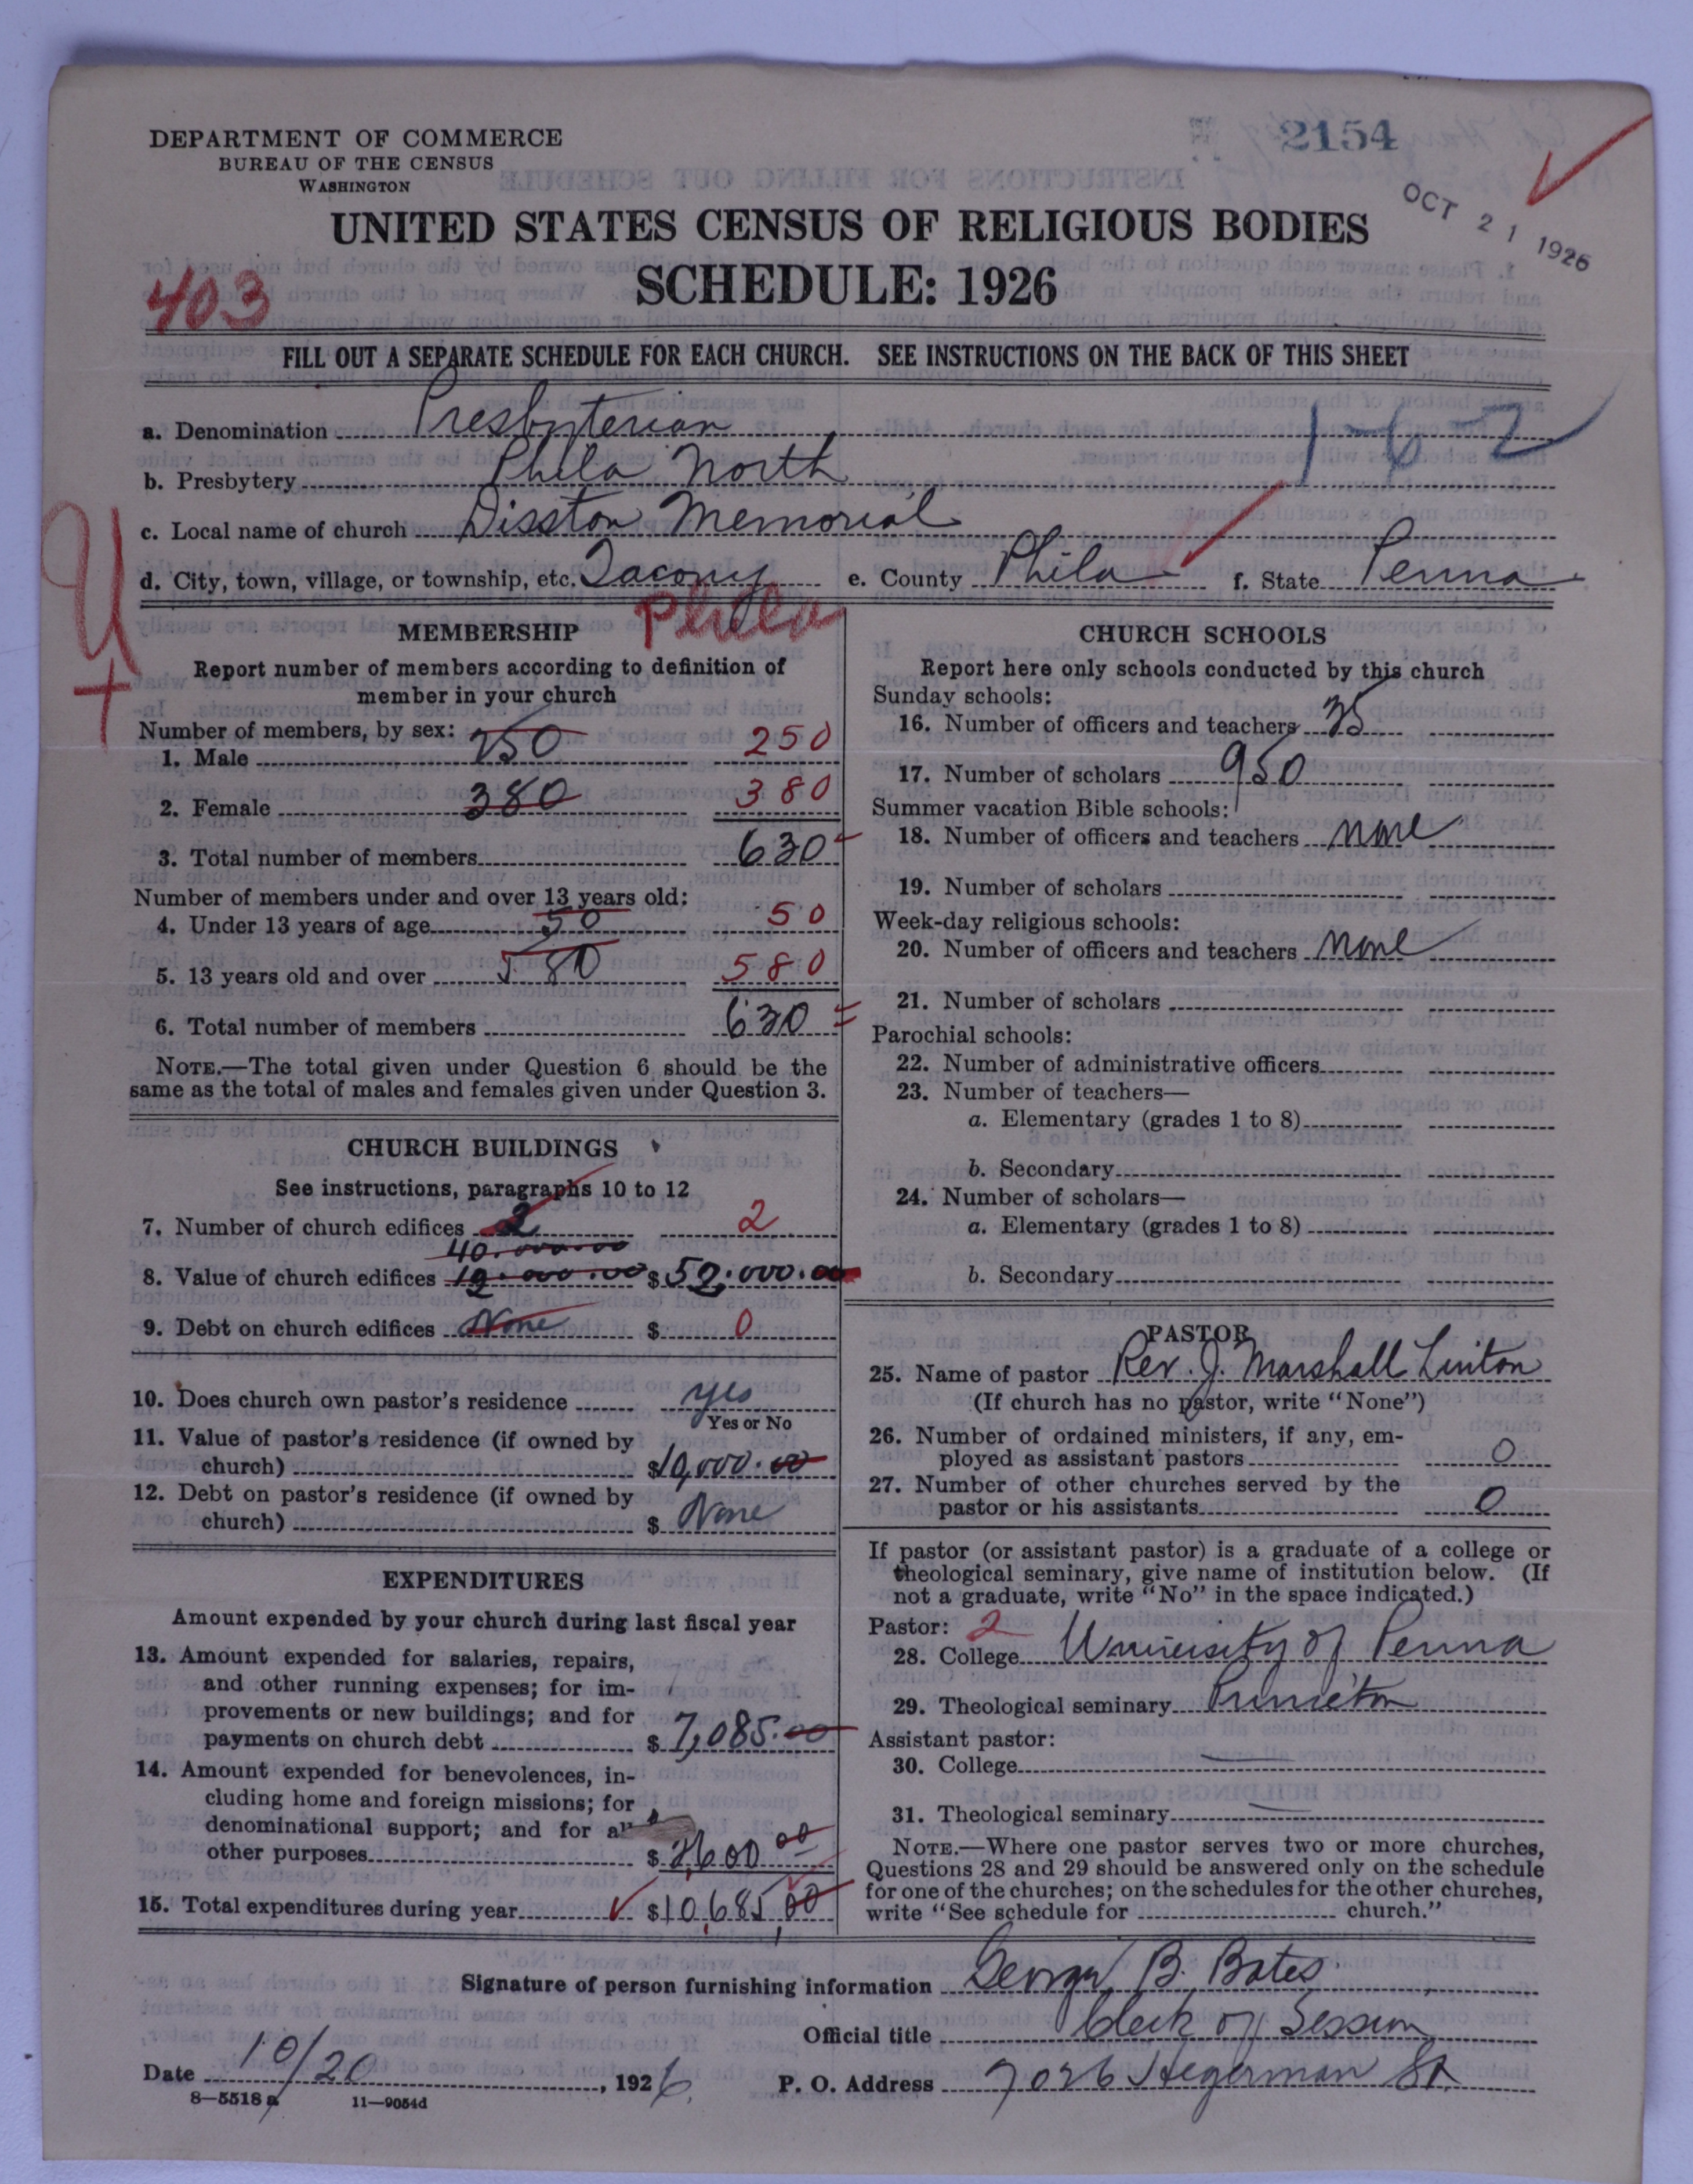 DEPARTMENT OF COMMERCE
BUREAU OF THE CENSUS
WASHINGTON
2154
OCT 21 1926
UNITED STATES CENSUS OF RELIGIOUS BODIES
SCHEDULE: 1926
403
FILL OUT A SEPARATE SCHEDULE FOR EACH CHURCH. SEE INSTRUCTIONS ON THE BACK OF THIS SHEET
a. Denomination Presbyterian
b. Presbytery Phila North
c. Local name of church Disston Memorial
d. City, town, village, or township, etc. Tacony e. County Phila f. State Penna
Phila
MEMBERSHIP
Report number of members according to definition of
member in your church
Number of members, by sex:
1. Male 250 250
2. Female 380 380
3. Total number of members 630
Number of members under and over 13 years old:
4. Under 13 years of age 50 50
5. 13 years old and over 580 580
6. Total number of members 630
NOTE.—The total given under Question 6 should be the
same as the total of males and females given under Question 3.
CHURCH BUILDINGS
See instructions, paragraphs 10 to 12
7. Number of church edifices 2 2
40.000.00
8. Value of church edifices $ 50.000.00
9. Debt on church edifices None $ 0
10. Does church own pastor's residence yes
Yes or No
11. Value of pastor's residence (if owned by
church) $10,000.00
12. Debt on pastor's residence (if owned by
church) $ None
EXPENDITURES
Amount expended by your church during last fiscal year
13. Amount expended for salaries, repairs,
and other running expenses; for im-
provements or new buildings; and for
payments on church debt $ 7,085.00
14. Amount expended for benevolences, in-
cluding home and foreign missions; for
denominational support; and for all
other purposes $ 3,600 00
15. Total expenditures during year $10,685,00
CHURCH SCHOOLS
Report here only schools conducted by this church
Sunday schools:
16. Number of officers and teachers 35
17. Number of scholars 950
Summer vacation Bible schools:
18. Number of officers and teachers none
19. Number of scholars
Week-day religious schools:
20. Number of officers and teachers none
21. Number of scholars
Parochial schools:
22. Number of administrative officers
23. Number of teachers—
a. Elementary (grades 1 to 8)
b. Secondary
24. Number of scholars—
a. Elementary (grades 1 to 8)
b. Secondary
PASTOR
25. Name of pastor Rev. J. Marshall Linton
(If church has no pastor, write "None")
26. Number of ordained ministers, if any, em-
ployed as assistant pastors 0
27. Number of other churches served by the
pastor or his assistants 0
If pastor (or assistant pastor) is a graduate of a college or
theological seminary, give name of institution below. (If
not a graduate, write "No" in the space indicated.)
Pastor: 2
28. College University of Penna
29. Theological seminary Princeton
Assistant pastor:
30. College
31. Theological seminary
NOTE.—Where one pastor serves two or more churches,
Questions 28 and 29 should be answered only on the schedule
for one of the churches; on the schedules for the other churches,
write "See schedule for church."
Signature of person furnishing information George B. Bates
Official title Clerk of Session
Date 10/20, 1926. P. O. Address 7026 Hegerman St.
8—5518 a 11—9054d